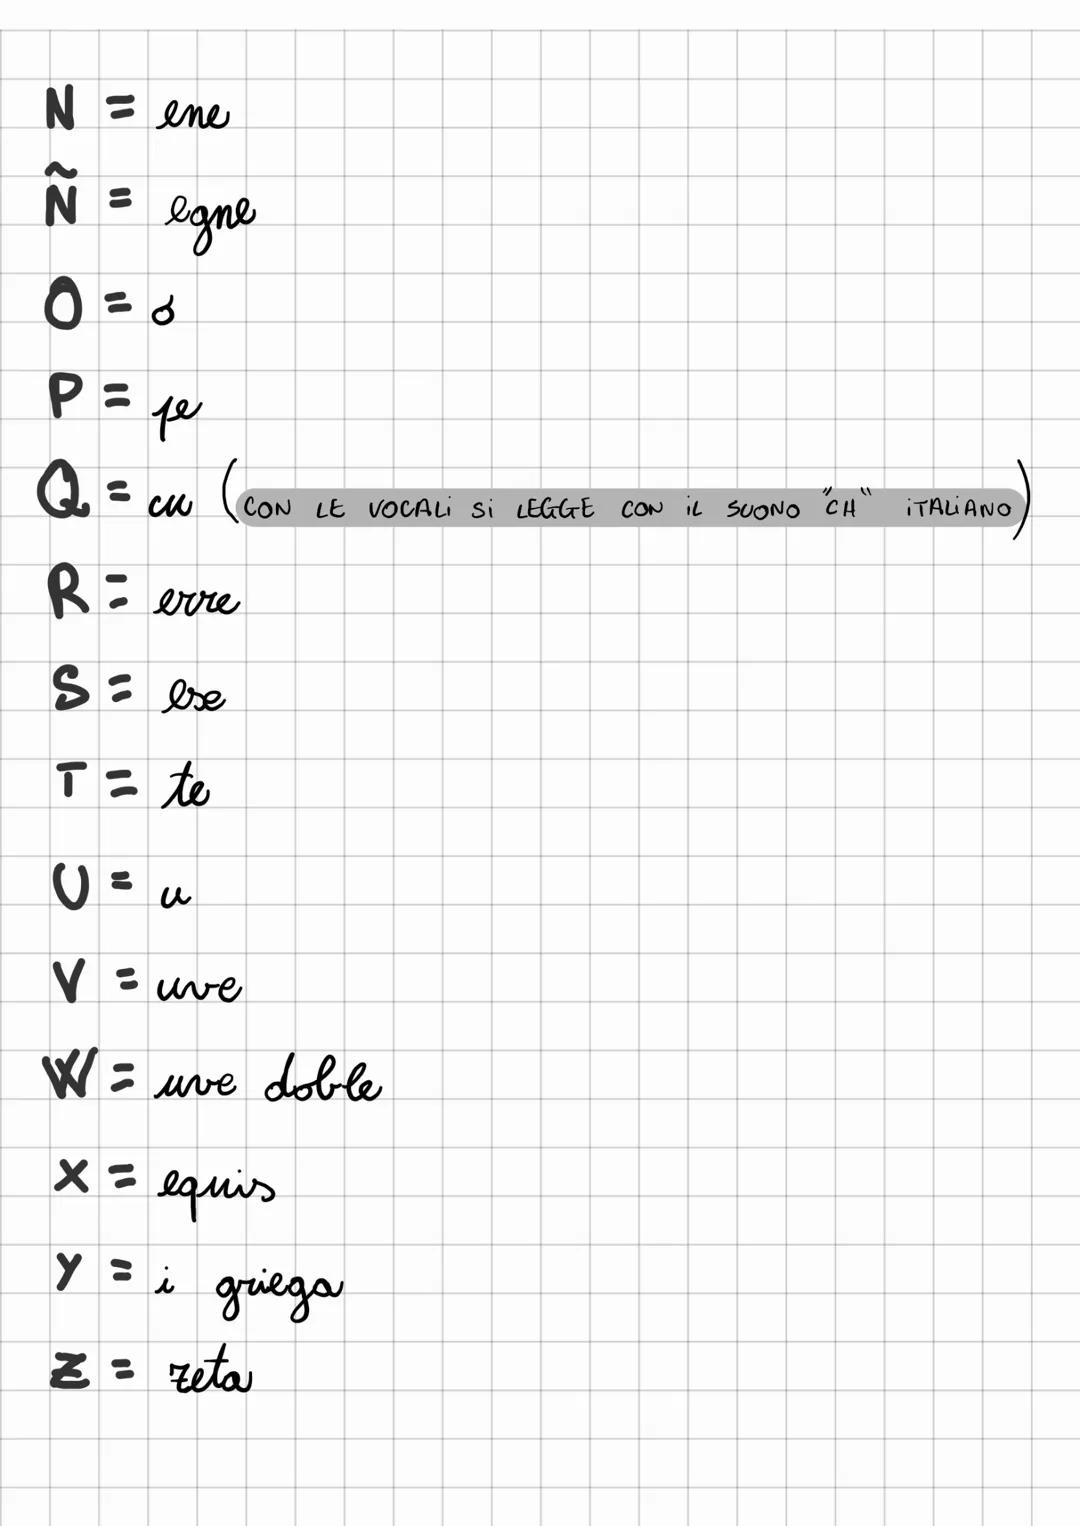 N = ene
Ñ = egne
O = o
P = pe
Q = cu (CON LE VOCALi Si LEGGE CON iL SUONO "CH" iTALiANO)
R = erre
S = ese
T = te
U = u
V = uve
W = uve doble
X = equis
Y = i griega
Z = zeta